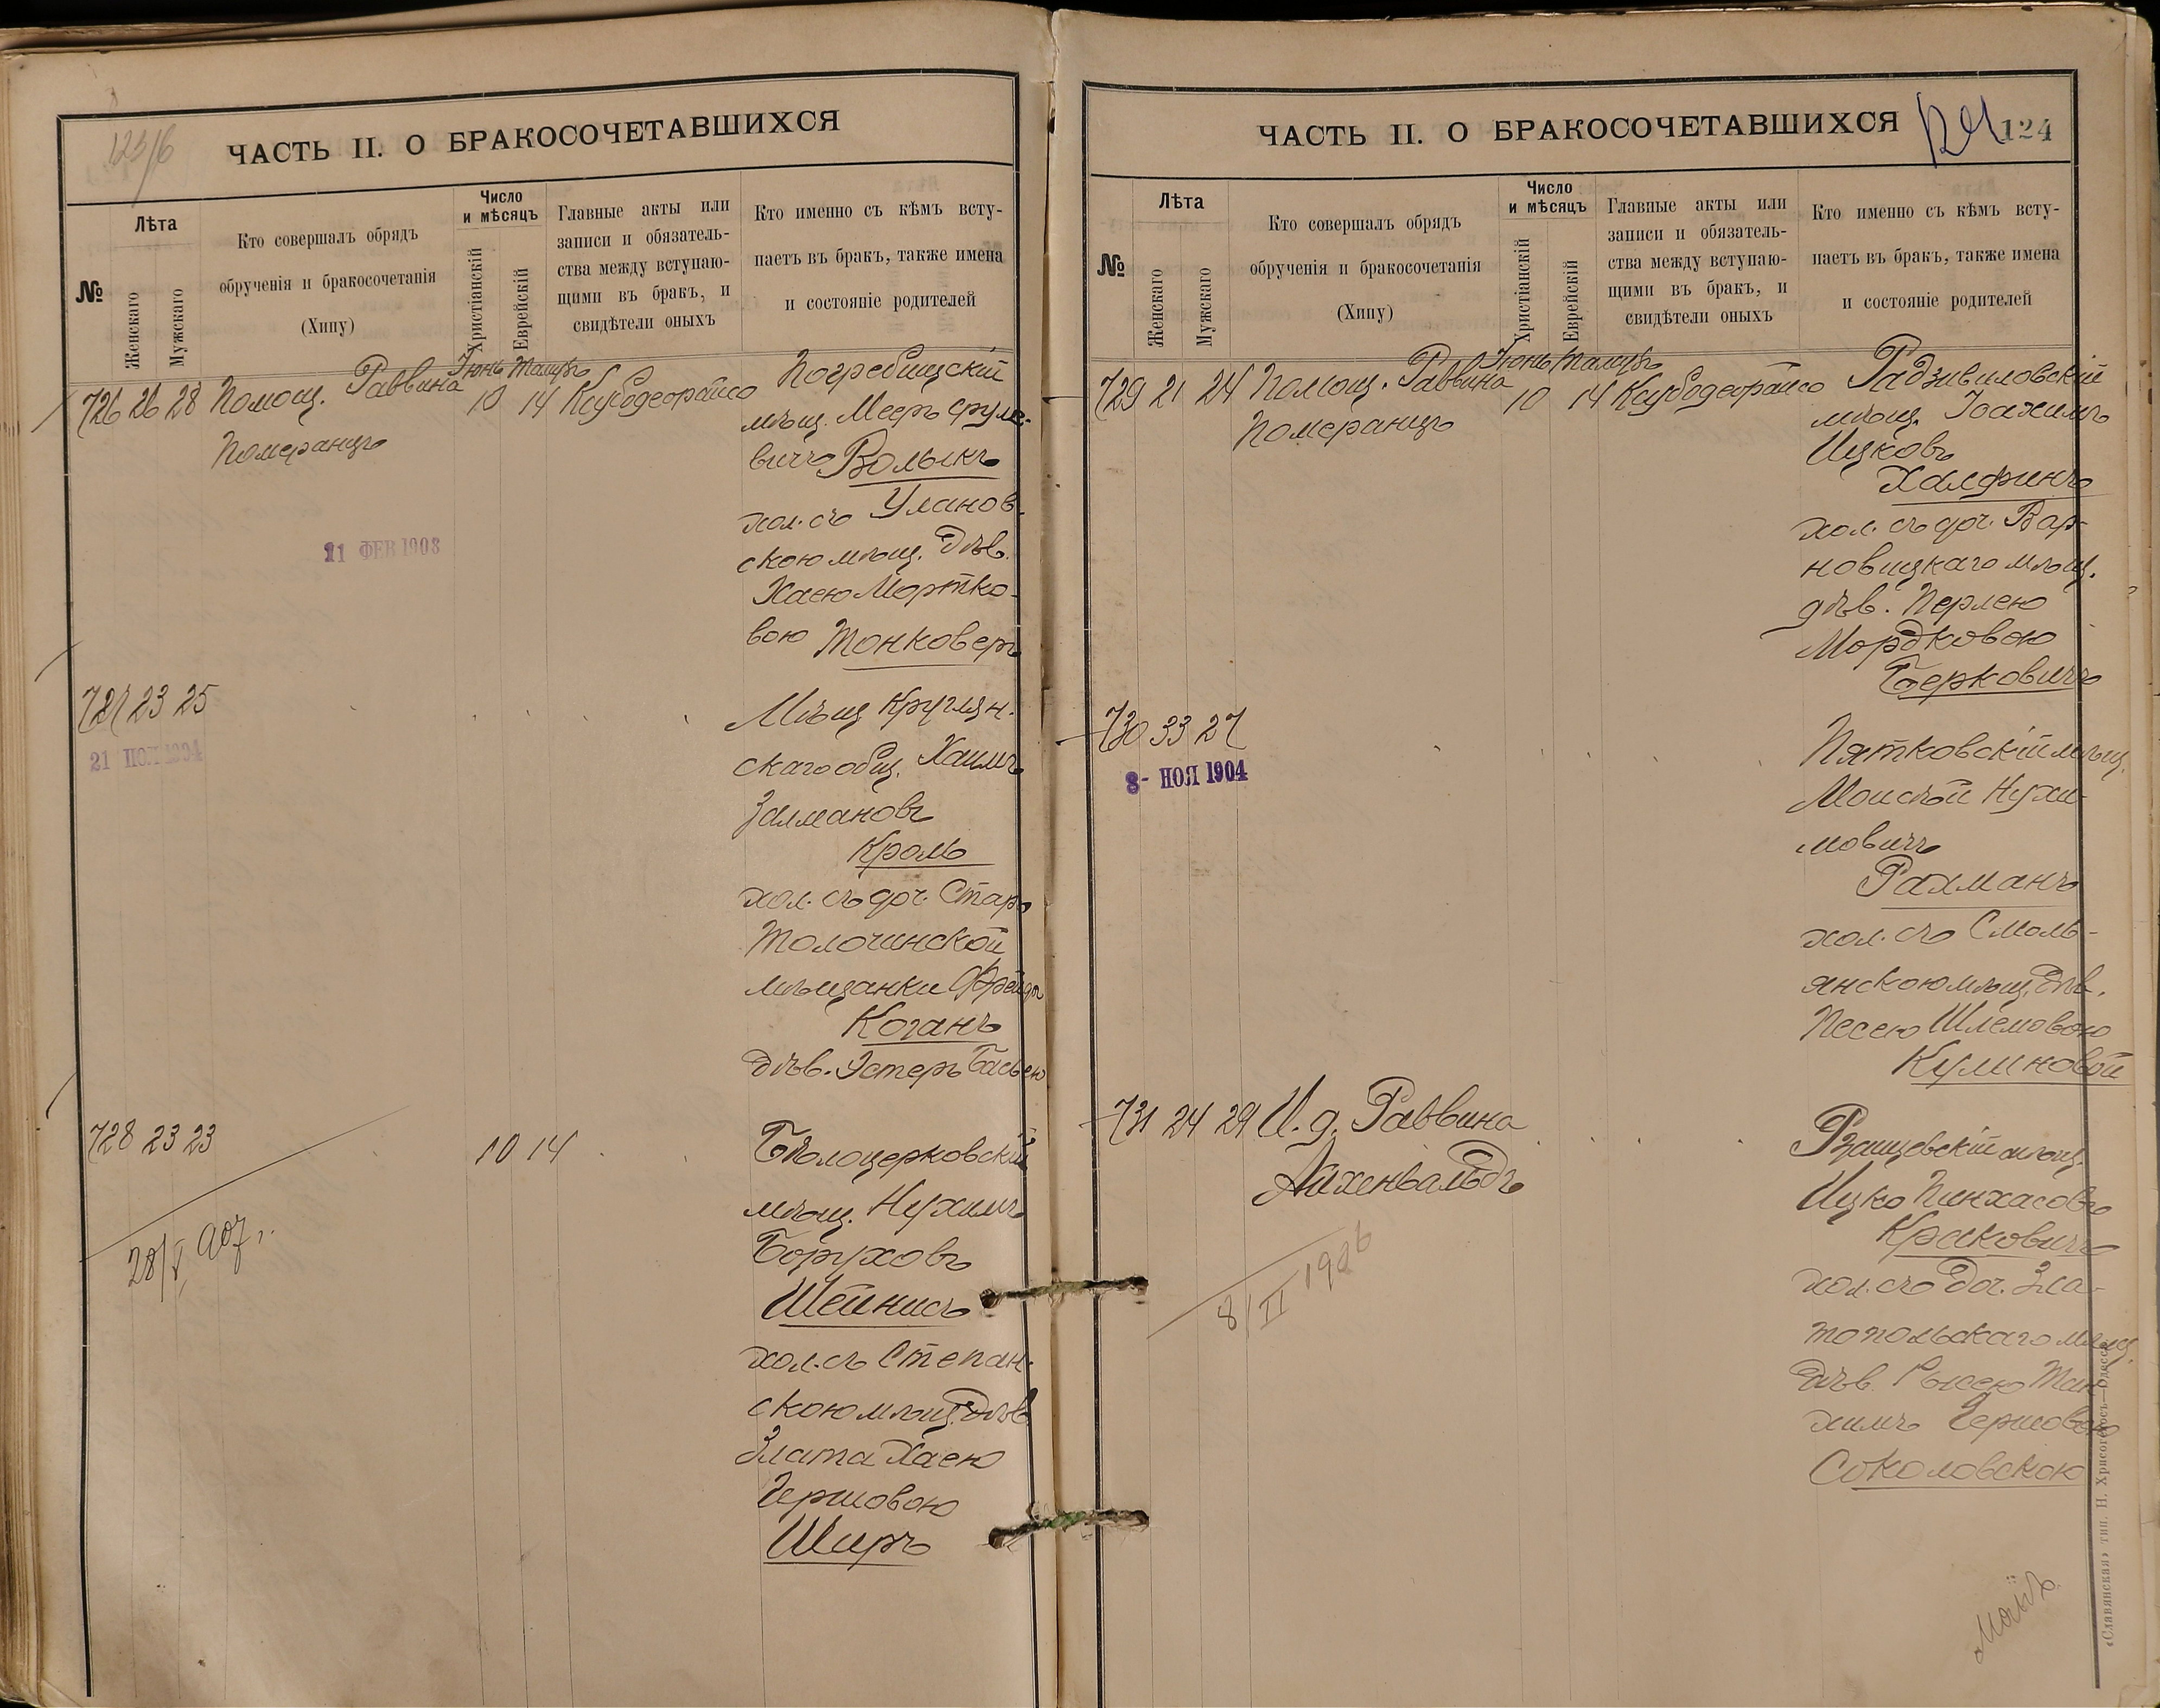 123/6
ЧАСТЬ II. О БРАКОСОЧЕТАВШИХСЯ
№
Лѣта
Женскаго
Мужскаго
Кто совершалъ обрядъ
обрученія и бракосочетанія
(Хипу)
Число
и мѣсяцъ
Христіанскій
Еврейскій
Главные акты или
записи и обязатель-
ства между вступаю-
щими въ бракъ, и
свидѣтели оныхъ
Кто именно съ кѣмъ всту-
паетъ въ бракъ, также имена
и состояніе родителей
Іюнь Тамузъ
726 26 28 Помощ. Раввина 10 14
Померанцъ
Погребищскій
мѣщ. Мееръ Сруле-
вичъ Волыкъ
хол. съ Уланов-
скою мѣщ. дѣв.
Хаею Мортко-
вою Тонковеръ
11 ФЕВ 1903
727 23 25
21
Мѣщ Круглян-
скаго общ. Хаимъ
Залмановъ
Кроль
хол. съ доч. Старо
Толочинской
мѣщанки Фрейды
Коганъ
дѣв. Эстеръ Басьею
728 23 23 10 14
28/V 907 г.
Бѣлоцерковскій
мѣщ. Нухимъ
Боруховъ
Шейнисъ
хол. съ Степан-
скою мѣщ. дѣв
Злата Хаею
Гершовою
Ширъ
ЧАСТЬ II. О БРАКОСОЧЕТАВШИХСЯ
124
№
Лѣта
Женскаго
Мужскаго
Кто совершалъ обрядъ
обрученія и бракосочетанія
(Хипу)
Число
и мѣсяцъ
Христіанскій
Еврейскій
Главные акты или
записи и обязатель-
ства между вступаю-
щими въ бракъ, и
свидѣтели оныхъ
Кто именно съ кѣмъ всту-
паетъ въ бракъ, также имена
и состояніе родителей
Іюнь Тамузъ
729 21 24 Помощ. Раввина 10 14
Померанцъ
Радзивиловскій
мѣщ. Іоахимъ
Ицковъ
Халфинъ
хол. съ доч. Вар-
новицкаго мѣщ.
дѣв. Перлею
Мордковою
Берковичъ
730 33 27
8- НОЯ 1904
Пятковскій мѣщ.
Моисѣй Нухи-
мовичъ
Рахманъ
хол. съ Смоль-
янскою мѣщ. дѣв.
Песею Шлемовою
Кулиновой
731 24 29 И. д. Раввина
Айхенвальдъ
8/II 1906
Рзащевскій мѣщ.
Ицко Пинхасовъ
Краковичъ
хол. съ доч. Зла-
топольскаго мѣщ.
дѣв. Рысею Тан
химъ Гершовою
Соколовскою
«Славянская» тип. Н. Хрисогелосъ—Одесса